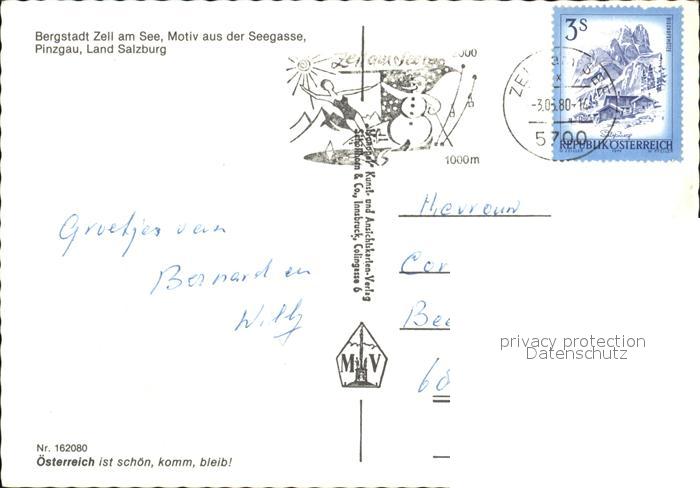 Bergstadt Zell am See, Motiv aus der Seegasse,
Pinzgau, Land Salzburg
Zell am See
2000
1000m
3S
-3.05.80-
5700
REPUBLIK ÖSTERREICH
Kunst- und Ansichtskarten-Verlag
& Co., Innsbruck, Colingasse 6
Groetjes van
Bernard en
Willy
Mevrouw
Cor
Bee
privacy protection
Datenschutz
68
M V
Nr. 162080
Österreich ist schön, komm, bleib!